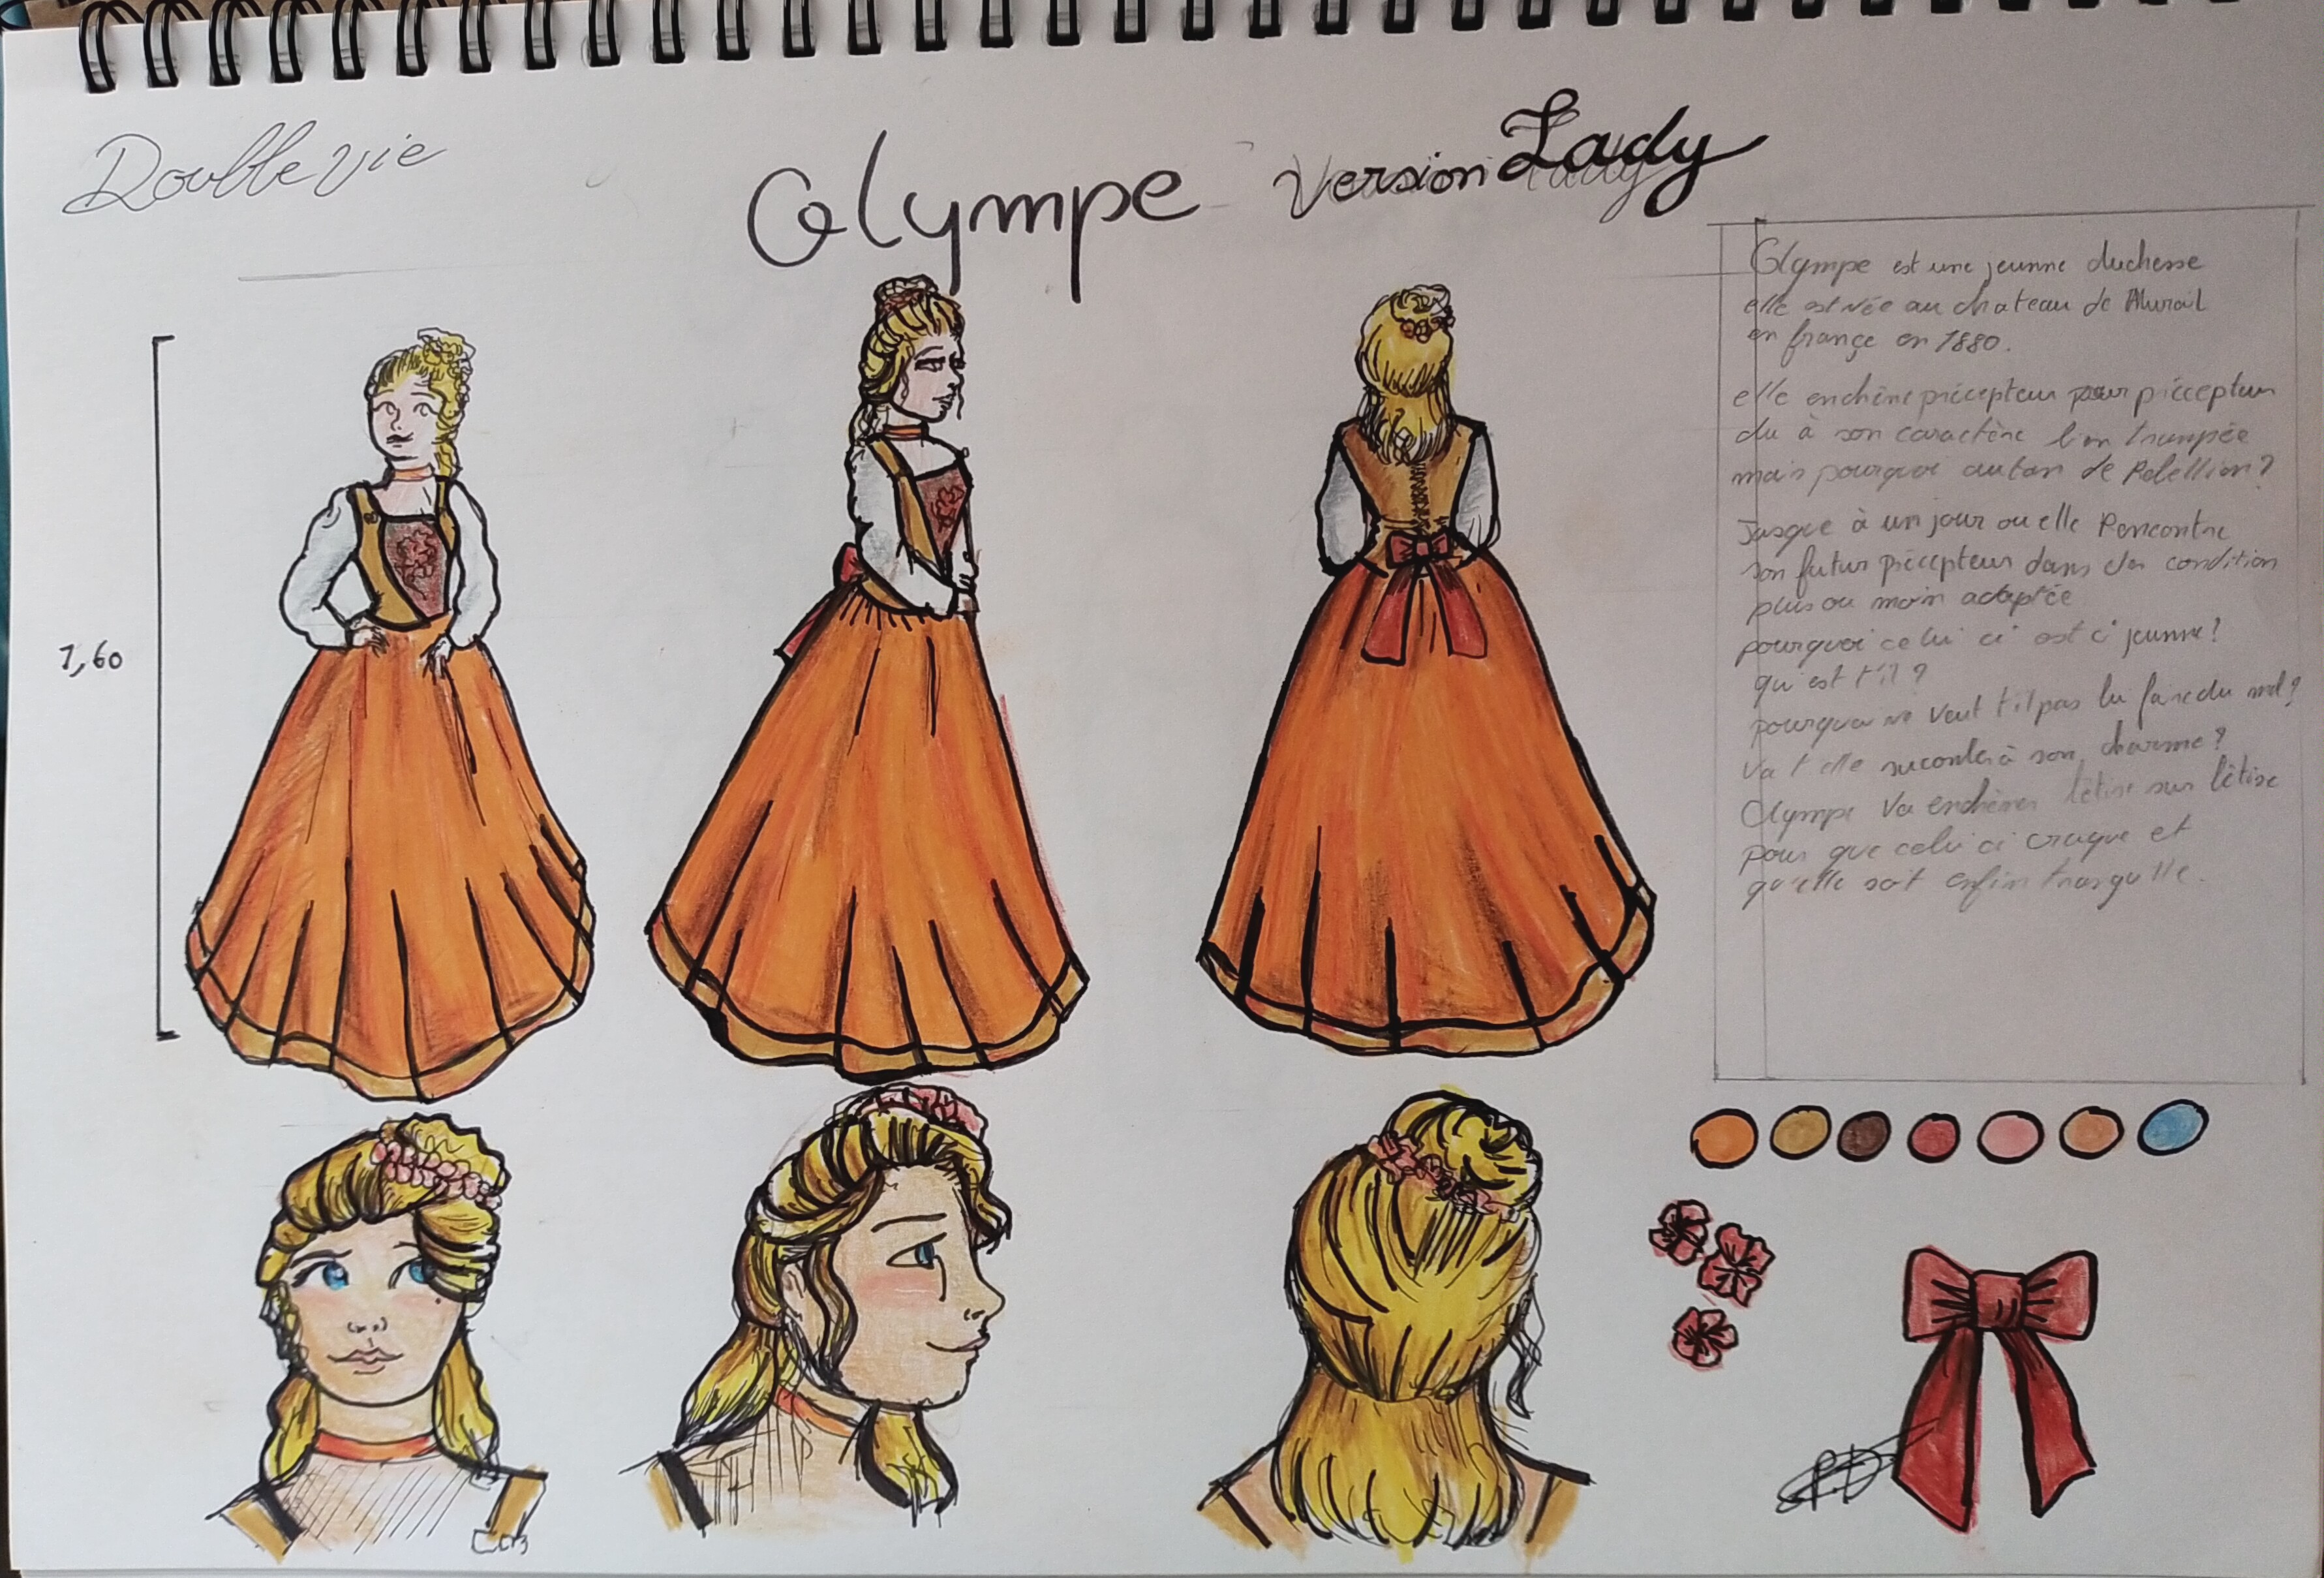 Double vie
Olympe - Version Lady
1,60
Olympe est une jeunne duchesse
elle est née au chateau de
en françe en 1880.
elle enchène précepteur pour précepteur
du à son caractène bien trempée
mais pourquoi autan de Rebellion?
Jusque à un jour ou elle Rencontre
son futur précepteur dans des condition
plus ou moin adaptée
pourquoi celui ci est ci jeunne?
qui est t'il?
pourquoi ne veut t'il pas lui faire du mal?
Va t elle sucomber à son charme?
Olympe Va enchèner bêtise sur bêtise
pour que celui ci craque et
qu'elle soit enfin tranquille.